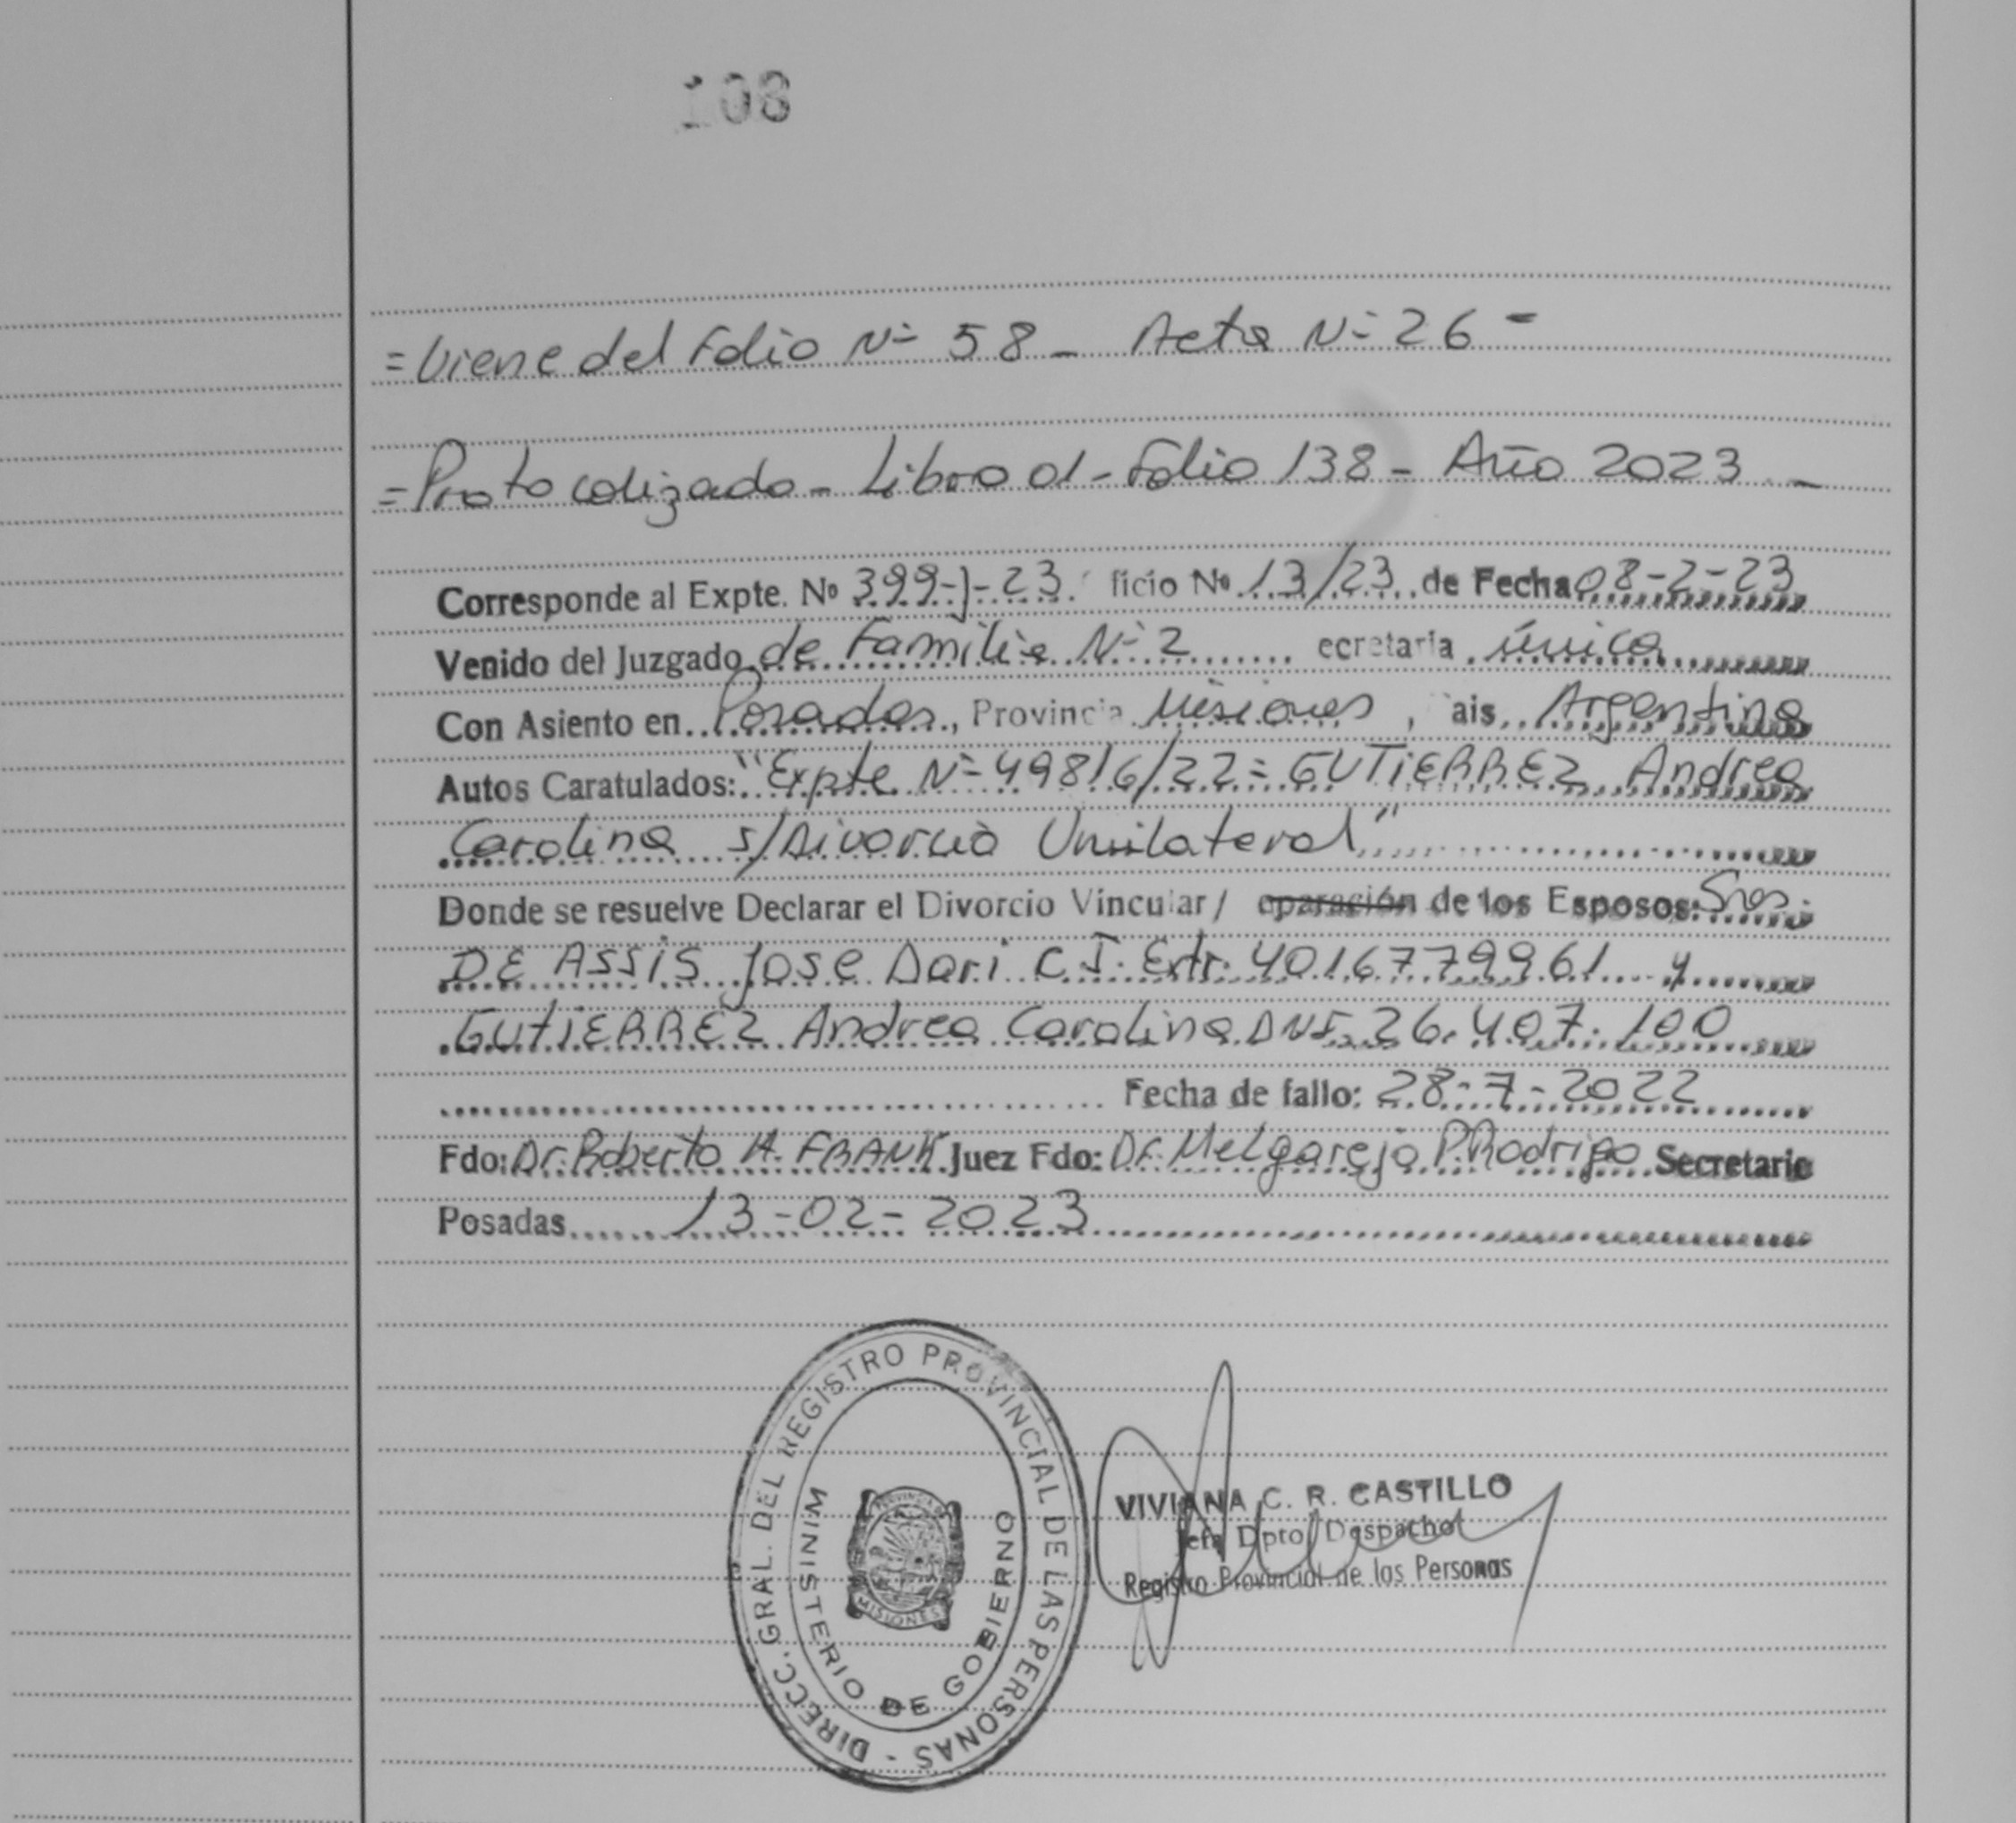 108
= Viene del Folio Nº 58 - Acta Nº 26 =
= Protocolizado - Libro 01 - Folio 138 - Año 2023 -
Corresponde al Expte. Nº 399-J-23 ficio Nº 13/23 de Fecha 08-2-23
Venido del Juzgado de Familia Nº 2 ecretaria única
Con Asiento en Posadas, Provincia Misiones, ais Argentina
Autos Caratulados: "Expte Nº 49816/22 = GUTIERREZ Andrea
Carolina s/Divorcio Unilateral"
Donde se resuelve Declarar el Divorcio Vincular/ eparación de los Esposos: Sres.
DE ASSIS Jose Dari C.I. Extr. 4016779961 y
GUTIERREZ Andrea Carolina DNI. 26.407.100
Fecha de fallo: 28-7-2022
Fdo: Dr. Roberto A. FRANK Juez Fdo: Dr. Melgarejo P. Rodrigo Secretario
Posadas 13-02-2023
DIRECC. GRAL. DEL REGISTRO PROVINCIAL DE LAS PERSONAS -
MINISTERIO DE GOBIERNO
PROVINCIA DE
MISIONES
VIVIANA C. R. CASTILLO
Jefa Dpto. Despacho
Registro Provincial de las Personas